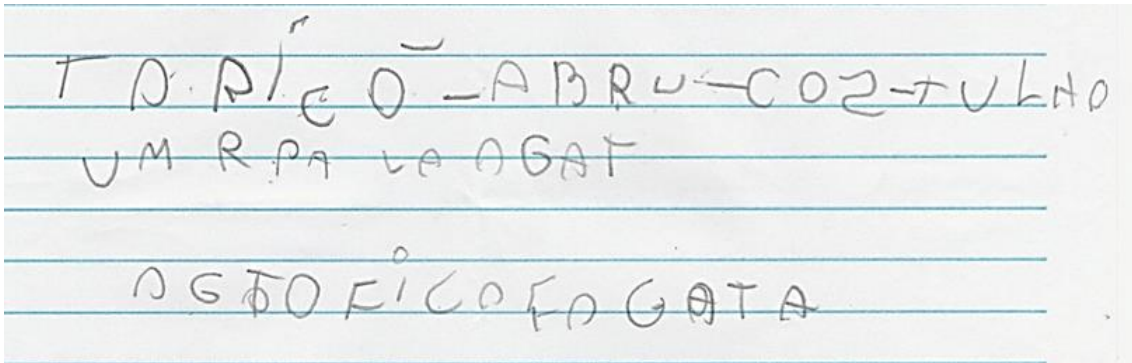 TA RÍCO - ABRU-CO2-TULHO
UM RPA LA AGAT
AGTO FICO FA GATA